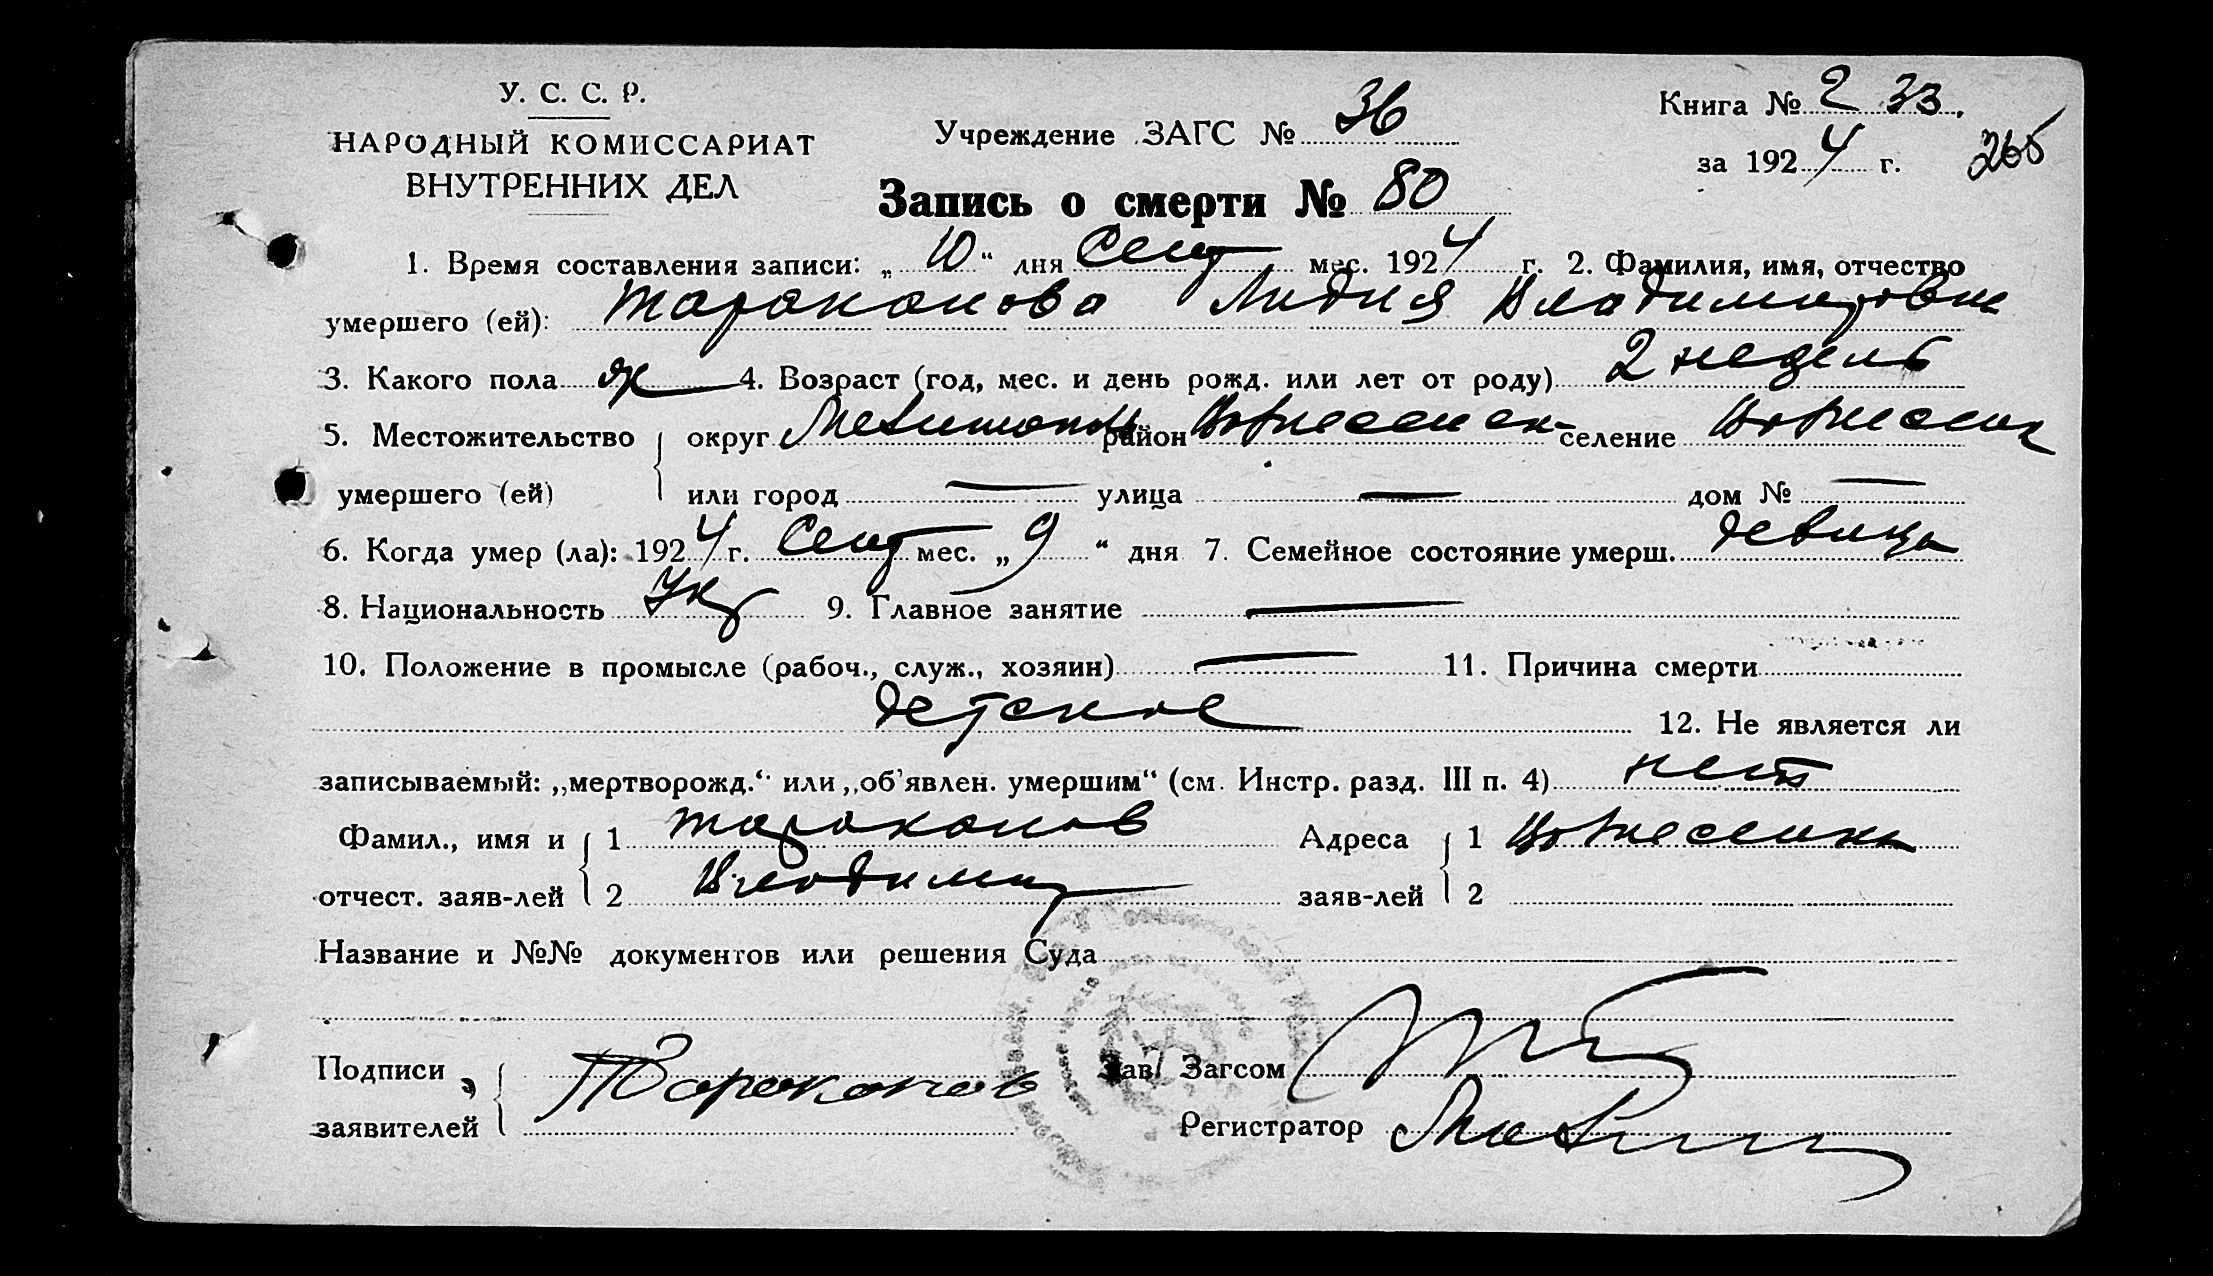 У. С. С. Р.
НАРОДНЫЙ КОМИССАРИАТ
ВНУТРЕННИХ ДЕЛ
Учреждение ЗАГС № 36
Книга № 2 33.
за 1924 г.
265
Запись о смерти № 80
1. Время составления записи: „ 10 “ дня Сент мес. 1924 г. 2. Фамилия, имя, отчество
умершего (ей): Тараканова Лидия Владимировна
3. Какого пола ж 4. Возраст (год, мес. и день рожд. или лет от роду) 2 недель
5. Местожительство округ Мелитополь район Вознесенск селение Вознесенк
умершего (ей) или город — улица — дом № —
6. Когда умер (ла): 1924 г. Сент мес. „ 9 “ дня 7. Семейное состояние умерш. девица
8. Национальность Укр 9. Главное занятие —
10. Положение в промысле (рабоч., служ., хозяин) — 11. Причина смерти
детское 12. Не является ли
записываемый: „мертворожд.“ или „об’явлен. умершим“ (см. Инстр. разд. III п. 4) нет
Фамил., имя и 1 Тараканов Адреса 1 Вознесенка
отчест. заяв-лей 2 Владимир заяв-лей 2
Название и №№ документов или решения Суда
Подписи Тараканов Зав. Загсом
заявителей Регистратор